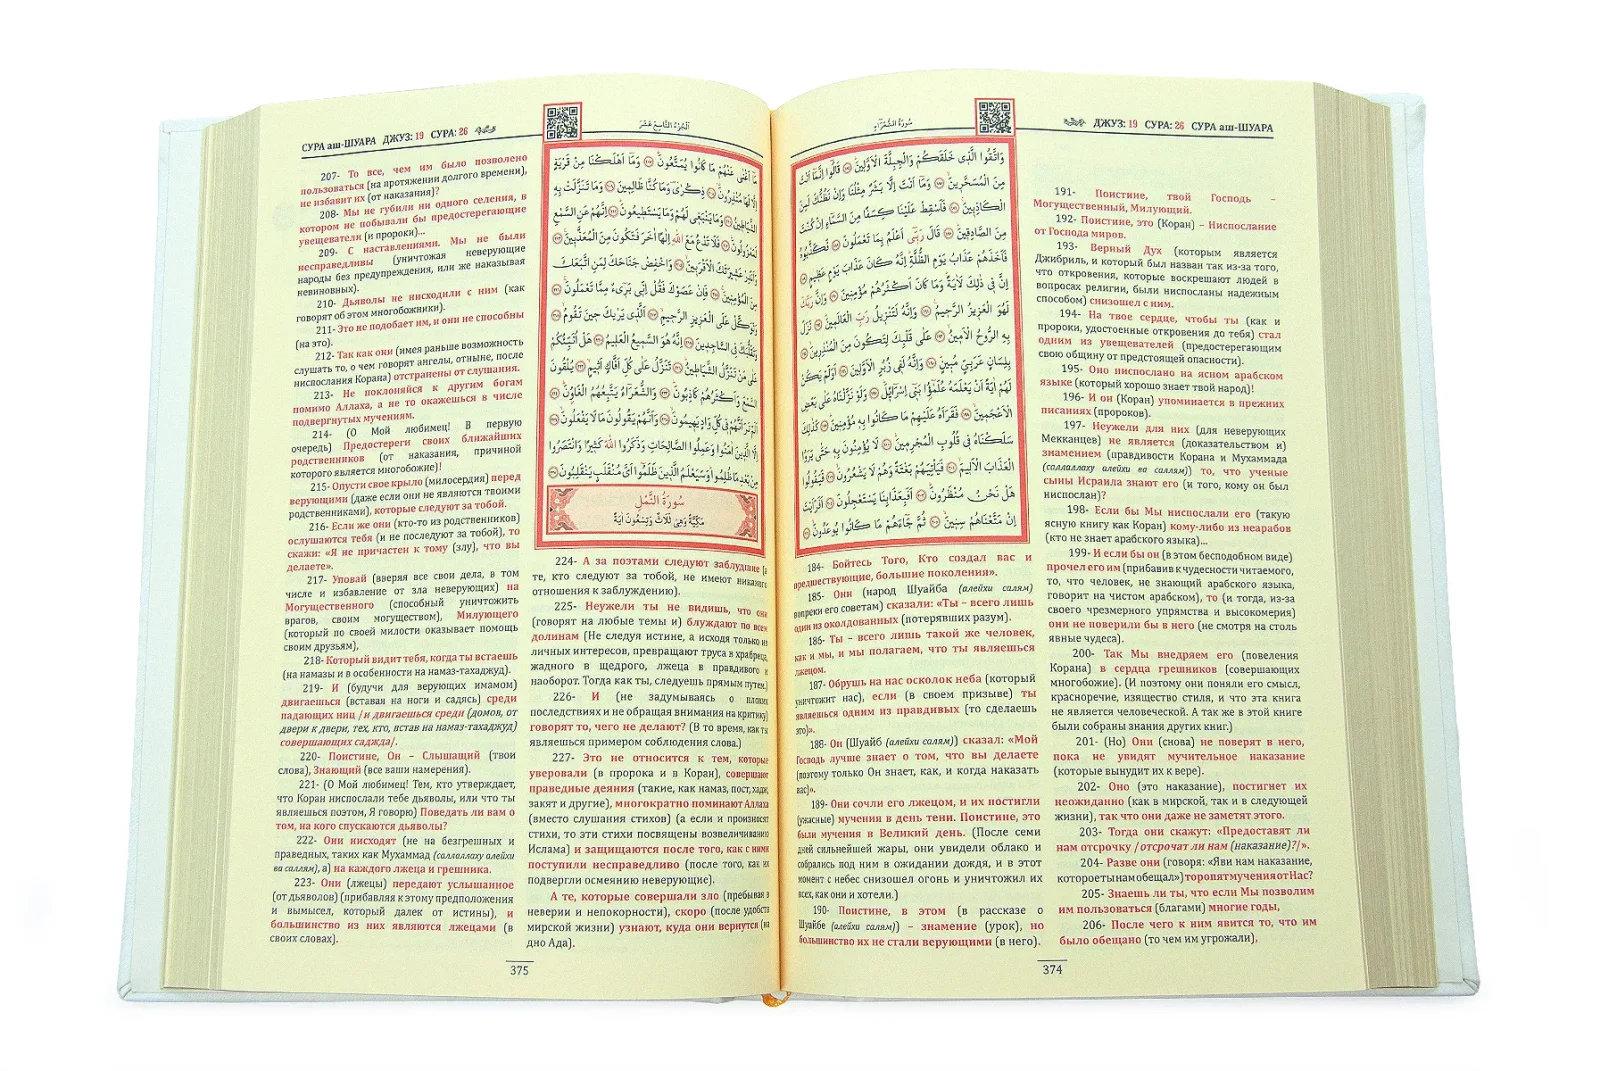 ДЖУЗ: 19 СУРА: 26 СУРА аш-ШУАРА
سُورَةُ الشُّعَرَاءِ
وَاتَّقُوا الَّذِى خَلَقَكُمْ وَالْجِبِلَّةَ الْاَوَّلِينَ ﴿١٨٤﴾ قَالُوا اِنَّمَا اَنْتَ
مِنَ الْمُسَحَّرِينَ ﴿١٨٥﴾ وَمَا اَنْتَ اِلَّا بَشَرٌ مِثْلُنَا وَاِنْ نَظُنُّكَ لَمِنَ
الْكَاذِبِينَ ﴿١٨٦﴾ فَاَسْقِطْ عَلَيْنَا كِسَفًا مِنَ السَّمَاءِ اِنْ كُنْتَ
مِنَ الصَّادِقِينَ ﴿١٨٧﴾ قَالَ رَبِّى اَعْلَمُ بِمَا تَعْمَلُونَ ﴿١٨٨﴾ فَكَذَّبُوهُ
فَاَخَذَهُمْ عَذَابُ يَوْمِ الظُّلَّةِ اِنَّهُ كَانَ عَذَابَ يَوْمٍ عَظِيمٍ ﴿١٨٩﴾
اِنَّ فِى ذٰلِكَ لَاٰيَةً وَمَا كَانَ اَكْثَرُهُمْ مُؤْمِنِينَ ﴿١٩٠﴾ وَاِنَّ رَبَّكَ
لَهُوَ الْعَزِيزُ الرَّحِيمُ ﴿١٩١﴾ وَاِنَّهُ لَتَنْزِيلُ رَبِّ الْعَالَمِينَ ﴿١٩٢﴾ نَزَلَ
بِهِ الرُّوحُ الْاَمِينُ ﴿١٩٣﴾ عَلٰى قَلْبِكَ لِتَكُونَ مِنَ الْمُنْذِرِينَ ﴿١٩٤﴾
بِلِسَانٍ عَرَبِىٍّ مُبِينٍ ﴿١٩٥﴾ وَاِنَّهُ لَفِى زُبُرِ الْاَوَّلِينَ ﴿١٩٦﴾ اَوَلَمْ يَكُنْ
لَهُمْ اٰيَةً اَنْ يَعْلَمَهُ عُلَمٰٓؤُا بَنِى اِسْرَائِيلَ ﴿١٩٧﴾ وَلَوْ نَزَّلْنَاهُ عَلٰى بَعْضِ
الْاَعْجَمِينَ ﴿١٩٨﴾ فَقَرَاَهُ عَلَيْهِمْ مَا كَانُوا بِهِ مُؤْمِنِينَ ﴿١٩٩﴾ كَذٰلِكَ
سَلَكْنَاهُ فِى قُلُوبِ الْمُجْرِمِينَ ﴿٢٠٠﴾ لَا يُؤْمِنُونَ بِهِ حَتّٰى يَرَوُا
الْعَذَابَ الْاَلِيمَ ﴿٢٠١﴾ فَيَاْتِيَهُمْ بَغْتَةً وَهُمْ لَا يَشْعُرُونَ ﴿٢٠٢﴾ فَيَقُولُوا
هَلْ نَحْنُ مُنْظَرُونَ ﴿٢٠٣﴾ اَفَبِعَذَابِنَا يَسْتَعْجِلُونَ ﴿٢٠٤﴾ اَفَرَاَيْتَ
اِنْ مَتَّعْنَاهُمْ سِنِينَ ﴿٢٠٥﴾ ثُمَّ جَاءَهُمْ مَا كَانُوا يُوعَدُونَ ﴿٢٠٦﴾
184- Бойтесь Того, Кто создал вас и
предшествующие, большие поколения».
185- Они (народ Шуайба (алейхи салям)
вопреки его советам) сказали: «Ты – всего лишь
один из околдованных (потерявших разум).
186- Ты – всего лишь такой же человек,
как и мы, и мы полагаем, что ты являешься
лжецом.
187- Обрушь на нас осколок неба (который
уничтожит нас), если (в своем призыве) ты
являешься одним из правдивых (то сделаешь
это)».
188- Он (Шуайб (алейхи салям)) сказал: «Мой
Господь лучше знает о том, что вы делаете
(поэтому только Он знает, как, и когда наказать
вас)».
189- Они сочли его лжецом, и их постигли
(ужасные) мучения в день тени. Поистине, это
были мучения в Великий день. (После семи
дней сильнейшей жары, они увидели облако и
собрались под ним в ожидании дождя, и в этот
момент с небес снизошел огонь и уничтожил их
всех, как они и хотели.)
190- Поистине, в этом (в рассказе о
Шуайбе (алейхи салям)) – знамение (урок), но
большинство их не стали верующими (в него).
191- Поистине, твой Господь –
Могущественный, Милующий.
192- Поистине, это (Коран) – Ниспослание
от Господа миров.
193- Верный Дух (которым является
Джибриль, и который был назван так из-за того,
что откровения, которые воскрешают людей в
вопросах религии, были ниспосланы надежным
способом) снизошел с ним.
194- На твое сердце, чтобы ты (как и
пророки, удостоенные откровения до тебя) стал
одним из увещевателей (предостерегающим
свою общину от предстоящей опасности).
195- Оно ниспослано на ясном арабском
языке (который хорошо знает твой народ)!
196- И он (Коран) упоминается в прежних
писаниях (пророков).
197- Неужели для них (для неверующих
Мекканцев) не является (доказательством и)
знамением (правдивости Корана и Мухаммада
(саллаллаху алейхи ва саллям)) то, что ученые
сыны Исраила знают его (и того, кому он был
ниспослан)?
198- Если бы Мы ниспослали его (такую
ясную книгу как Коран) кому-либо из неарабов
(кто не знает арабского языка)...
199- И если бы он (в этом бесподобном виде)
прочел его им (прибавив к чудесности читаемого,
то, что человек, не знающий арабского языка,
говорит на чистом арабском), то (и тогда, из-за
своего чрезмерного упрямства и высокомерия)
они не поверили бы в него (не смотря на столь
явные чудеса).
200- Так Мы внедряем его (повеления
Корана) в сердца грешников (совершающих
многобожие). (И поэтому они поняли его смысл,
красноречие, изящество стиля, и что эта книга
не является человеческой. А так же в этой книге
были собраны знания других книг.)
201- (Но) Они (снова) не поверят в него,
пока не увидят мучительное наказание
(которые вынудит их к вере).
202- Оно (это наказание), постигнет их
неожиданно (как в мирской, так и в следующей
жизни), так что они даже не заметят этого.
203- Тогда они скажут: «Предоставят ли
нам отсрочку /отсрочат ли нам (наказание)?/».
204- Разве они (говоря: «Яви нам наказание,
которое ты нам обещал») торопят мучения от Нас?
205- Знаешь ли ты, что если Мы позволим
им пользоваться (благами) многие годы,
206- После чего к ним явится то, что им
было обещано (то чем им угрожали),
374
СУРА аш-ШУАРА ДЖУЗ: 19 СУРА: 26
اَلْجُزْءُ التَّاسِعَ عَشَرَ
مَا اَغْنٰى عَنْهُمْ مَا كَانُوا يُمَتَّعُونَ ﴿٢٠٧﴾ وَمَا اَهْلَكْنَا مِنْ قَرْيَةٍ
اِلَّا لَهَا مُنْذِرُونَ ﴿٢٠٨﴾ ذِكْرٰى وَمَا كُنَّا ظَالِمِينَ ﴿٢٠٩﴾ وَمَا تَنَزَّلَتْ بِهِ
الشَّيَاطِينُ ﴿٢١٠﴾ وَمَا يَنْبَغِى لَهُمْ وَمَا يَسْتَطِيعُونَ ﴿٢١١﴾ اِنَّهُمْ عَنِ السَّمْعِ
لَمَعْزُولُونَ ﴿٢١٢﴾ فَلَا تَدْعُ مَعَ اللّٰهِ اِلٰهًا اٰخَرَ فَتَكُونَ مِنَ الْمُعَذَّبِينَ ﴿٢١٣﴾
وَاَنْذِرْ عَشِيرَتَكَ الْاَقْرَبِينَ ﴿٢١٤﴾ وَاخْفِضْ جَنَاحَكَ لِمَنِ اتَّبَعَكَ
مِنَ الْمُؤْمِنِينَ ﴿٢١٥﴾ فَاِنْ عَصَوْكَ فَقُلْ اِنِّى بَرِىءٌ مِمَّا تَعْمَلُونَ ﴿٢١٦﴾
وَتَوَكَّلْ عَلَى الْعَزِيزِ الرَّحِيمِ ﴿٢١٧﴾ اَلَّذِى يَرٰيكَ حِينَ تَقُومُ ﴿٢١٨﴾
وَتَقَلُّبَكَ فِى السَّاجِدِينَ ﴿٢١٩﴾ اِنَّهُ هُوَ السَّمِيعُ الْعَلِيمُ ﴿٢٢٠﴾ هَلْ اُنَبِّئُكُمْ
عَلٰى مَنْ تَنَزَّلُ الشَّيَاطِينُ ﴿٢٢١﴾ تَنَزَّلُ عَلٰى كُلِّ اَفَّاكٍ اَثِيمٍ ﴿٢٢٢﴾ يُلْقُونَ
السَّمْعَ وَاَكْثَرُهُمْ كَاذِبُونَ ﴿٢٢٣﴾ وَالشُّعَرَاءُ يَتَّبِعُهُمُ الْغَاوُونَ ﴿٢٢٤﴾
اَلَمْ تَرَ اَنَّهُمْ فِى كُلِّ وَادٍ يَهِيمُونَ ﴿٢٢٥﴾ وَاَنَّهُمْ يَقُولُونَ مَا لَا يَفْعَلُونَ ﴿٢٢٦﴾
اِلَّا الَّذِينَ اٰمَنُوا وَعَمِلُوا الصَّالِحَاتِ وَذَكَرُوا اللّٰهَ كَثِيرًا وَانْتَصَرُوا
مِنْ بَعْدِ مَا ظُلِمُوا وَسَيَعْلَمُ الَّذِينَ ظَلَمُوا اَىَّ مُنْقَلَبٍ يَنْقَلِبُونَ ﴿٢٢٧﴾
سُورَةُ النَّمْلِ
مَكِّيَّةٌ وَهِىَ ثَلَاثٌ وَتِسْعُونَ اٰيَةً
207- То все, чем им было позволено
пользоваться (на протяжении долгого времени),
не избавит их (от наказания)?
208- Мы не губили ни одного селения, в
котором не побывали бы предостерегающие
увещеватели (и пророки)...
209- С наставлениями. Мы не были
несправедливы (уничтожая неверующие
народы без предупреждения, или же наказывая
невиновных).
210- Дьяволы не нисходили с ним (как
говорят об этом многобожники).
211- Это не подобает им, и они не способны
(на это).
212- Так как они (имея раньше возможность
слушать то, о чем говорят ангелы, отныне, после
ниспослания Корана) отстранены от слушания.
213- Не поклоняйся к другим богам
помимо Аллаха, а не то окажешься в числе
подвергнутых мучениям.
214- (О Мой любимец! В первую
очередь) Предостереги своих ближайших
родственников (от наказания, причиной
которого является многобожие)!
215- Опусти свое крыло (милосердия) перед
верующими (даже если они не являются твоими
родственниками), которые следуют за тобой.
216- Если же они (кто-то из родственников)
ослушаются тебя (и не последуют за тобой), то
скажи: «Я не причастен к тому (злу), что вы
делаете».
217- Уповай (вверяя все свои дела, в том
числе и избавление от зла неверующих) на
Могущественного (способный уничтожить
врагов, своим могуществом), Милующего
(который по своей милости оказывает помощь
своим друзьям),
218- Который видит тебя, когда ты встаешь
(на намазы и в особенности на намаз-тахаджуд).
219- И (будучи для верующих имамом)
двигаешься (вставая на ноги и садясь) среди
падающих ниц /и двигаешься среди (домов, от
двери к двери, тех, кто, встав на намаз-тахаджуд)
совершающих саджда/.
220- Поистине, Он – Слышащий (твои
слова), Знающий (все ваши намерения).
221- (О Мой любимец! Тем, кто утверждает,
что Коран ниспослали тебе дьяволы, или что ты
являешься поэтом, Я говорю) Поведать ли вам о
том, на кого спускаются дьяволы?
222- Они нисходят (не на безгрешных и
праведных, таких как Мухаммад (саллаллаху алейхи
ва саллям), а) на каждого лжеца и грешника.
223- Они (лжецы) передают услышанное
(от дьяволов) (прибавляя к этому предположения
и вымысел, который далек от истины), и
большинство из них являются лжецами (в
своих словах).
224- А за поэтами следуют заблудшие (а
те, кто следуют за тобой, не имеют никакого
отношения к заблуждению).
225- Неужели ты не видишь, что они
(говорят на любые темы и) блуждают по всем
долинам (Не следуя истине, а исходя только из
личных интересов, превращают труса в храбреца,
жадного в щедрого, лжеца в правдивого и
наоборот. Тогда как ты, следуешь прямым путем.)
226- И (не задумываясь о плохих
последствиях и не обращая внимания на критику)
говорят то, чего не делают? (В то время, как ты
являешься примером соблюдения слова.)
227- Это не относится к тем, которые
уверовали (в пророка и в Коран), совершают
праведные деяния (такие, как намаз, пост, хадж,
закят и другие), многократно поминают Аллаха
(вместо слушания стихов) (а если и произносят
стихи, то эти стихи посвящены возвеличиванию
Ислама) и защищаются после того, как с ними
поступили несправедливо (после того, как их
подвергли осмеянию неверующие).
А те, которые совершали зло (пребывая в
неверии и непокорности), скоро (после удобств
мирской жизни) узнают, куда они вернутся (на
дно Ада).
375